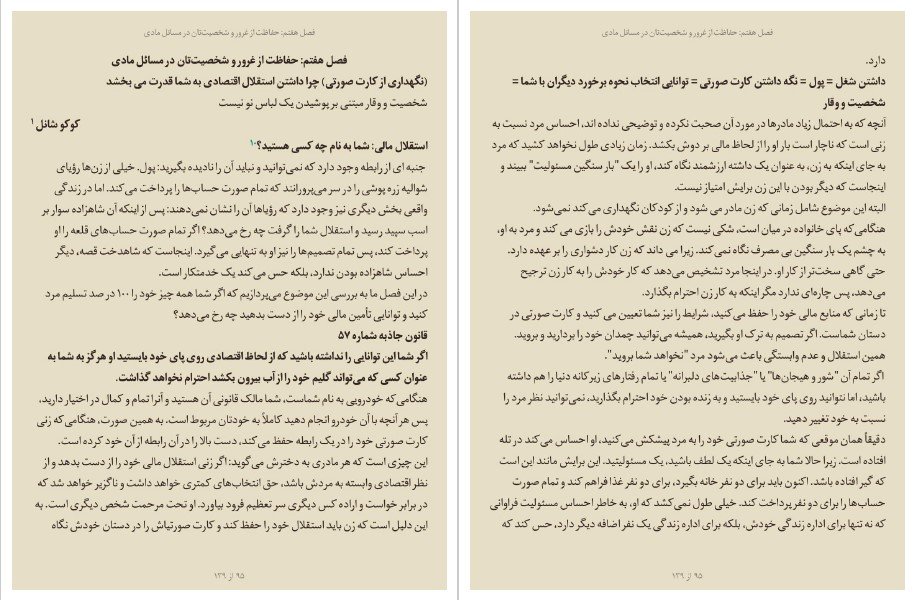 فصل هفتم: حفاظت از غرور و شخصیت‌تان در مسائل مادی
فصل هفتم: حفاظت از غرور و شخصیت‌تان در مسائل مادی
(نگهداری از کارت صورتی) چرا داشتن استقلال اقتصادی به شما قدرت می بخشد
شخصیت و وقار مبتنی بر پوشیدن یک لباس نو نیست
کوکو شانل ۱
استقلال مالی: شما به نام چه کسی هستید؟۱۰
جنبه ای از رابطه وجود دارد که نمی‌توانید و نباید آن را نادیده بگیرید: پول. خیلی از زن‌ها رؤیای
شوالیه زره پوشی را در سر می‌پرورانند که تمام صورت حساب‌ها را پرداخت می‌کند. اما در زندگی
واقعی بخش دیگری نیز وجود دارد که رؤیاها آن را نشان نمی‌دهند: پس از اینکه آن شاهزاده سوار بر
اسب سپید رسید و استقلال شما را گرفت چه رخ می‌دهد؟ اگر تمام صورت حساب‌های قلعه را او
پرداخت کند، پس تمام تصمیم‌ها را نیز او به تنهایی می‌گیرد. اینجاست که شاهدخت قصه، دیگر
احساس شاهزاده بودن ندارد، بلکه حس می کند یک خدمتکار است.
در این فصل ما به بررسی این موضوع می‌پردازیم که اگر شما همه چیز خود را ۱۰۰ در صد تسلیم مرد
کنید و توانایی تأمین مالی خود را از دست بدهید چه رخ می‌دهد؟
قانون جاذبه شماره ۵۷
اگر شما این توانایی را نداشته باشید که از لحاظ اقتصادی روی پای خود بایستید او هرگز به شما به
عنوان کسی که می‌تواند گلیم خود را از آب بیرون بکشد احترام نخواهد گذاشت.
هنگامی‌که خودرویی به نام شماست، شما مالک قانونی آن هستید و آنرا تمام و کمال در اختیار دارید،
پس هر آنچه با آن خودرو انجام دهید کاملاً به خودتان مربوط است. به همین صورت، هنگامی‌که زنی
کارت صورتی خود را در یک رابطه حفظ می‌کند، دست بالا را در آن رابطه از آن خود کرده است.
این چیزی است که هر مادری به دخترش می‌گوید: اگر زنی استقلال مالی خود را از دست بدهد و از
نظر اقتصادی وابسته به مردش باشد، حق انتخاب‌های کمتری خواهد داشت و ناگزیر خواهد شد که
در برابر خواست و اراده کس دیگری سر تعظیم فرود بیاورد. او تحت مرحمت شخص دیگری است. به
این دلیل است که زن باید استقلال خود را حفظ کند و کارت صورتی‌اش را در دستان خودش نگاه
۹۵ از ۱۳۹
فصل هفتم: حفاظت از غرور و شخصیت‌تان در مسائل مادی
دارد.
داشتن شغل = پول = نگه داشتن کارت صورتی = توانایی انتخاب نحوه برخورد دیگران با شما =
شخصیت و وقار
آنچه که به احتمال زیاد مادرها در مورد آن صحبت نکرده و توضیحی نداده اند، احساس مرد نسبت به
زنی است که ناچار است بار او را از لحاظ مالی بر دوش بکشد. زمان زیادی طول نخواهد کشید که مرد
به جای اینکه به زن، به عنوان یک داشته ارزشمند نگاه کند، او را یک "بار سنگین مسئولیت" ببیند و
اینجاست که دیگر بودن با این زن برایش امتیاز نیست.
البته این موضوع شامل زمانی که زن مادر می شود و از کودکان نگهداری می کند نمی‌شود.
هنگامی‌که پای خانواده در میان است، شکی نیست که زن نقش خودش را بازی می کند و مرد به او،
به چشم یک بار سنگین بی مصرف نگاه نمی کند، زیرا می داند که زن کار دشواری را بر عهده دارد.
حتی گاهی سخت‌تر از کار او. در اینجا مرد تشخیص می‌دهد که کار خودش را به کار زن ترجیح
می‌دهد، پس چاره‌ای ندارد مگر اینکه به کار زن احترام بگذارد.
تا زمانی که منابع مالی خود را حفظ می‌کنید، شرایط را نیز شما تعیین می کنید و کارت صورتی در
دستان شماست. اگر تصمیم به ترک او بگیرید، همیشه می‌توانید چمدان خود را بردارید و بروید.
همین استقلال و عدم وابستگی باعث می‌شود مرد "نخواهد شما بروید".
اگر تمام آن "شور و هیجان‌ها" یا "جذابیت‌های دلبرانه" یا تمام رفتارهای زیرکانه دنیا را هم داشته
باشید، اما نتوانید روی پای خود بایستید و به زنده بودن خود احترام بگذارید، نمی‌توانید نظر مرد را
نسبت به خود تغییر دهید.
دقیقاً همان موقعی که شما کارت صورتی خود را به مرد پیشکش می‌کنید، او احساس می کند در تله
افتاده است. زیرا حالا شما به جای اینکه یک لطف باشید، یک مسئولیتید. این برایش مانند این است
که گیر افتاده باشد. اکنون باید برای دو نفر خانه بگیرد، برای دو نفر غذا فراهم کند و تمام صورت
حساب‌ها را برای دو نفر پرداخت کند. خیلی طول نمی‌کشد که او، به خاطر احساس مسئولیت فراوانی
که نه تنها برای اداره زندگی خودش، بلکه برای اداره زندگی یک نفر اضافه دیگر دارد، حس کند که
۹۵ از ۱۳۹